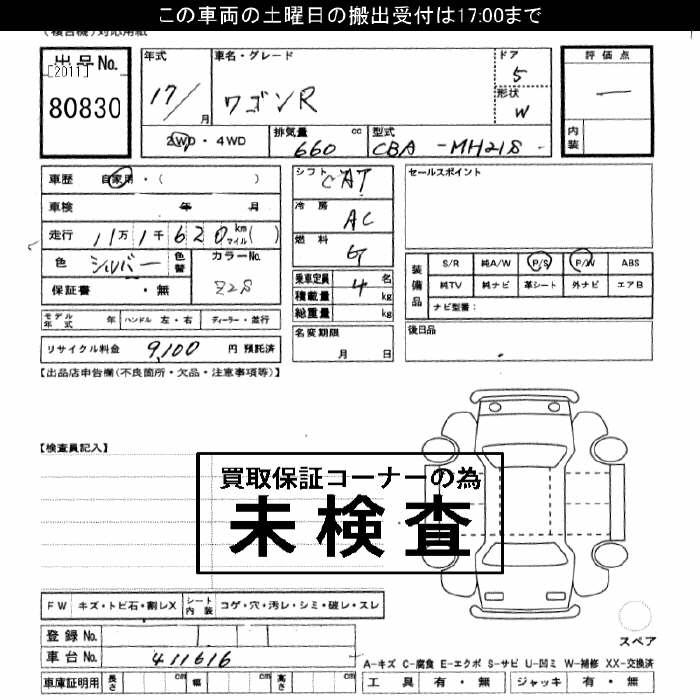 この車両の土曜日の搬出受付は17:00まで
出品No.
[2011]
80830
年式
17/
月
車名・グレード
ワゴンR
ドア
5
形状
W
評価点
―
内装
2WD・4WD
排気量
cc
660
型式
CBA -MH21S
車歴 自家用・( )
車検 年 月
走行 11万1千620 km マイル ( )
色 シルバー 色替
カラーNo.
Z2S
保証書 ・無
シフト
CAT
冷房
AC
燃料
G
乗車定員 4 名
積載量 kg
総重量 kg
セールスポイント
装備品
S/R 純A/W P/S P/W ABS
純TV 純ナビ 革シート 外ナビ エアB
ナビ型番:
モデル年式 年 ハンドル 左・右 ディーラー・並行
名変期限
月 日
後日品
リサイクル料金 9,100 円 預託済
【出品店申告欄(不良箇所・欠品・注意事項等)】
【検査員記入】
買取保証コーナーの為
未検査
FW キズ・トビ石・割レX シート内装 コゲ・穴・汚レ・シミ・破レ・スレ
登録No.
車台No. 411616
車庫証明用 長さ cm 幅 cm 高さ cm
スペア
A-キズ C-腐食 E-エクボ S-サビ U-凹ミ W-補修 XX-交換済
工具 有・無 ジャッキ 有・無